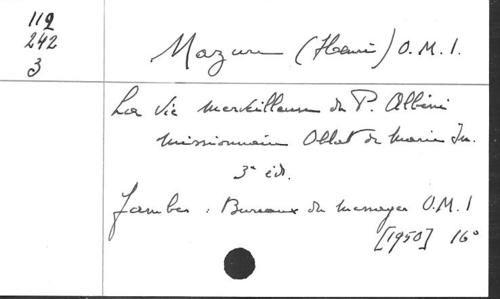 112
242
3
Mazure (Henri) O.M.I.
La Vie merveilleuse du P. Albini
missionnaire Oblat de Marie Im.
3e éd.
Jambes : Bureaux du messager O.M.I
[1950] 16°